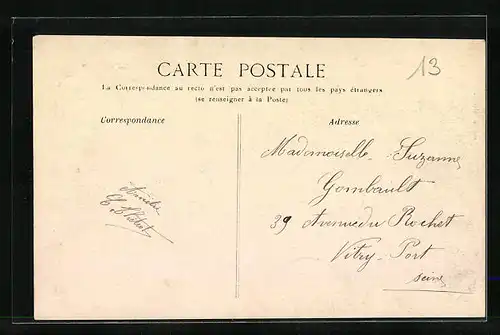 CARTE POSTALE
13
La Correspondance au recto n'est pas acceptée par tous les pays étrangers
(se renseigner à la Poste)
Correspondance
Adresse
Mademoiselle Suzanne
Gombault
39 Avenue du Rochet
Vitry-Port
Seine